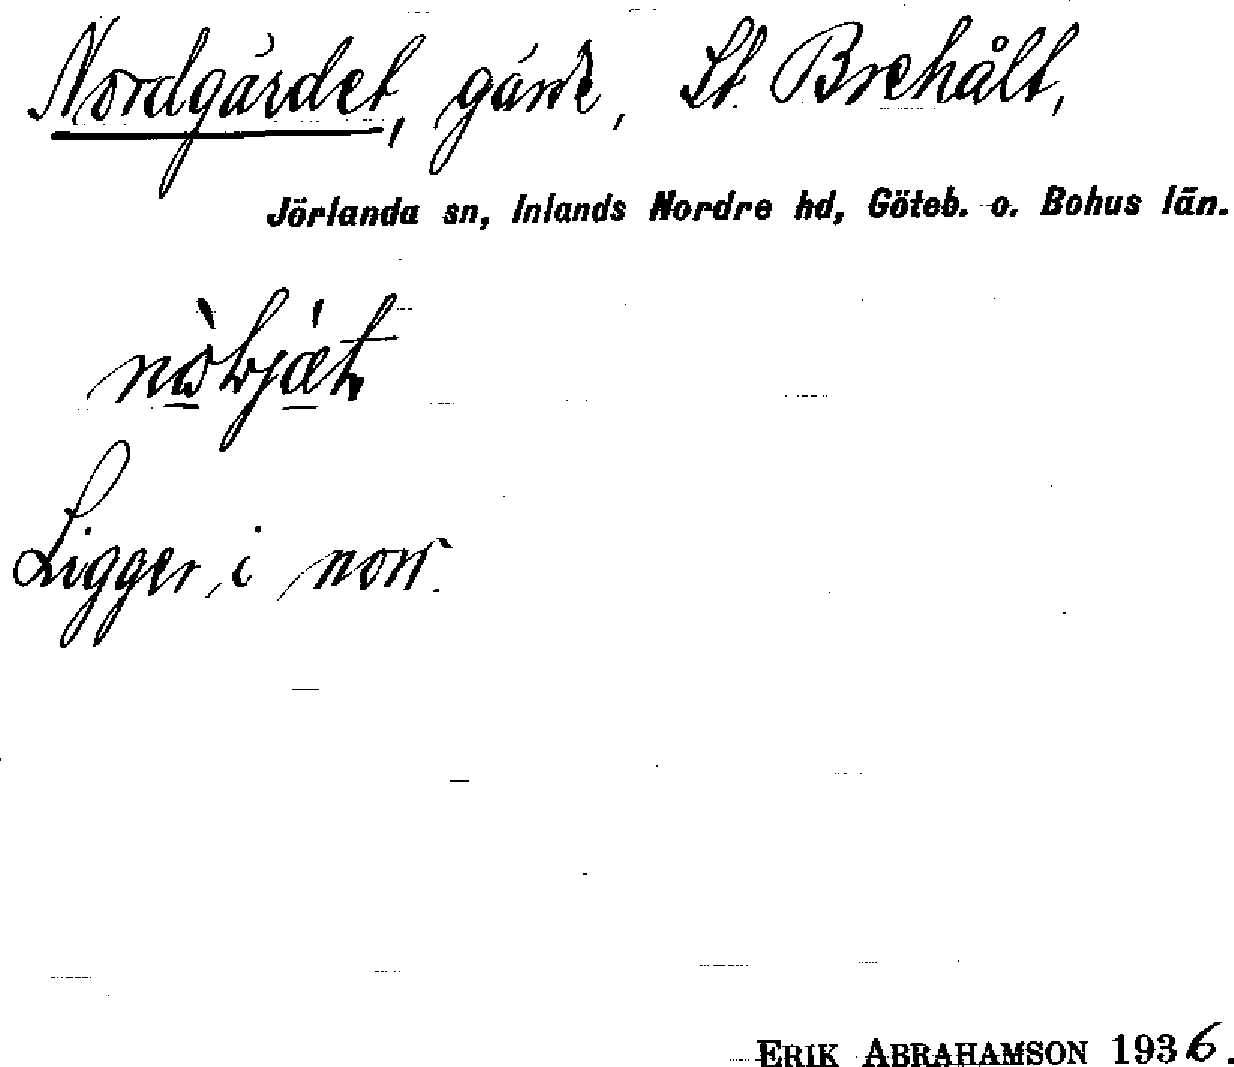 Nordgärdet, gärde, St. Brehålt,
Jörlanda sn, Inlands Nordre hd, Göteb. o. Bohus län.
Ligger i norr.
ERIK ABRAHAMSON 1936.